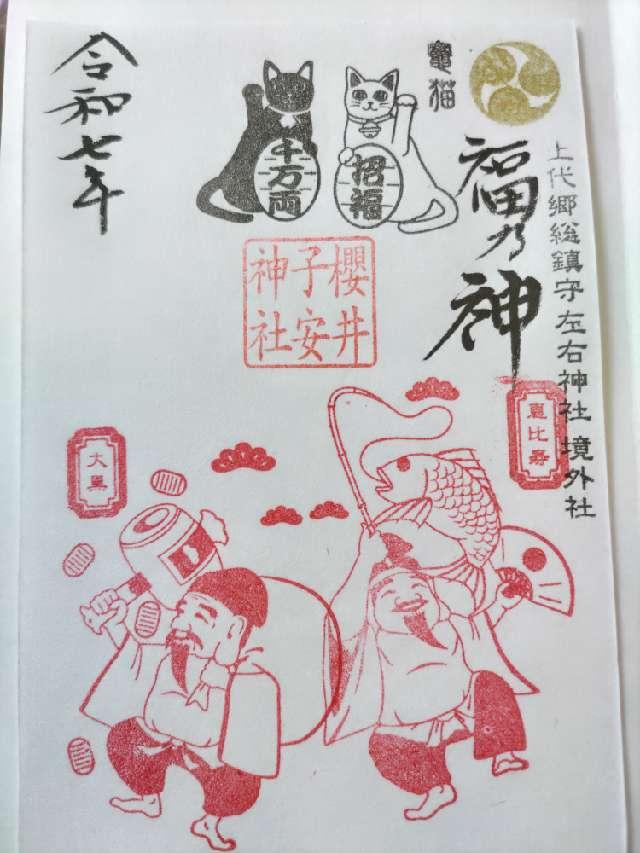 上代郷総鎮守左右神社 境外社
竈猫
福乃神
招福
千万両
櫻井
子安
神社
恵比寿
大黒
令和七年